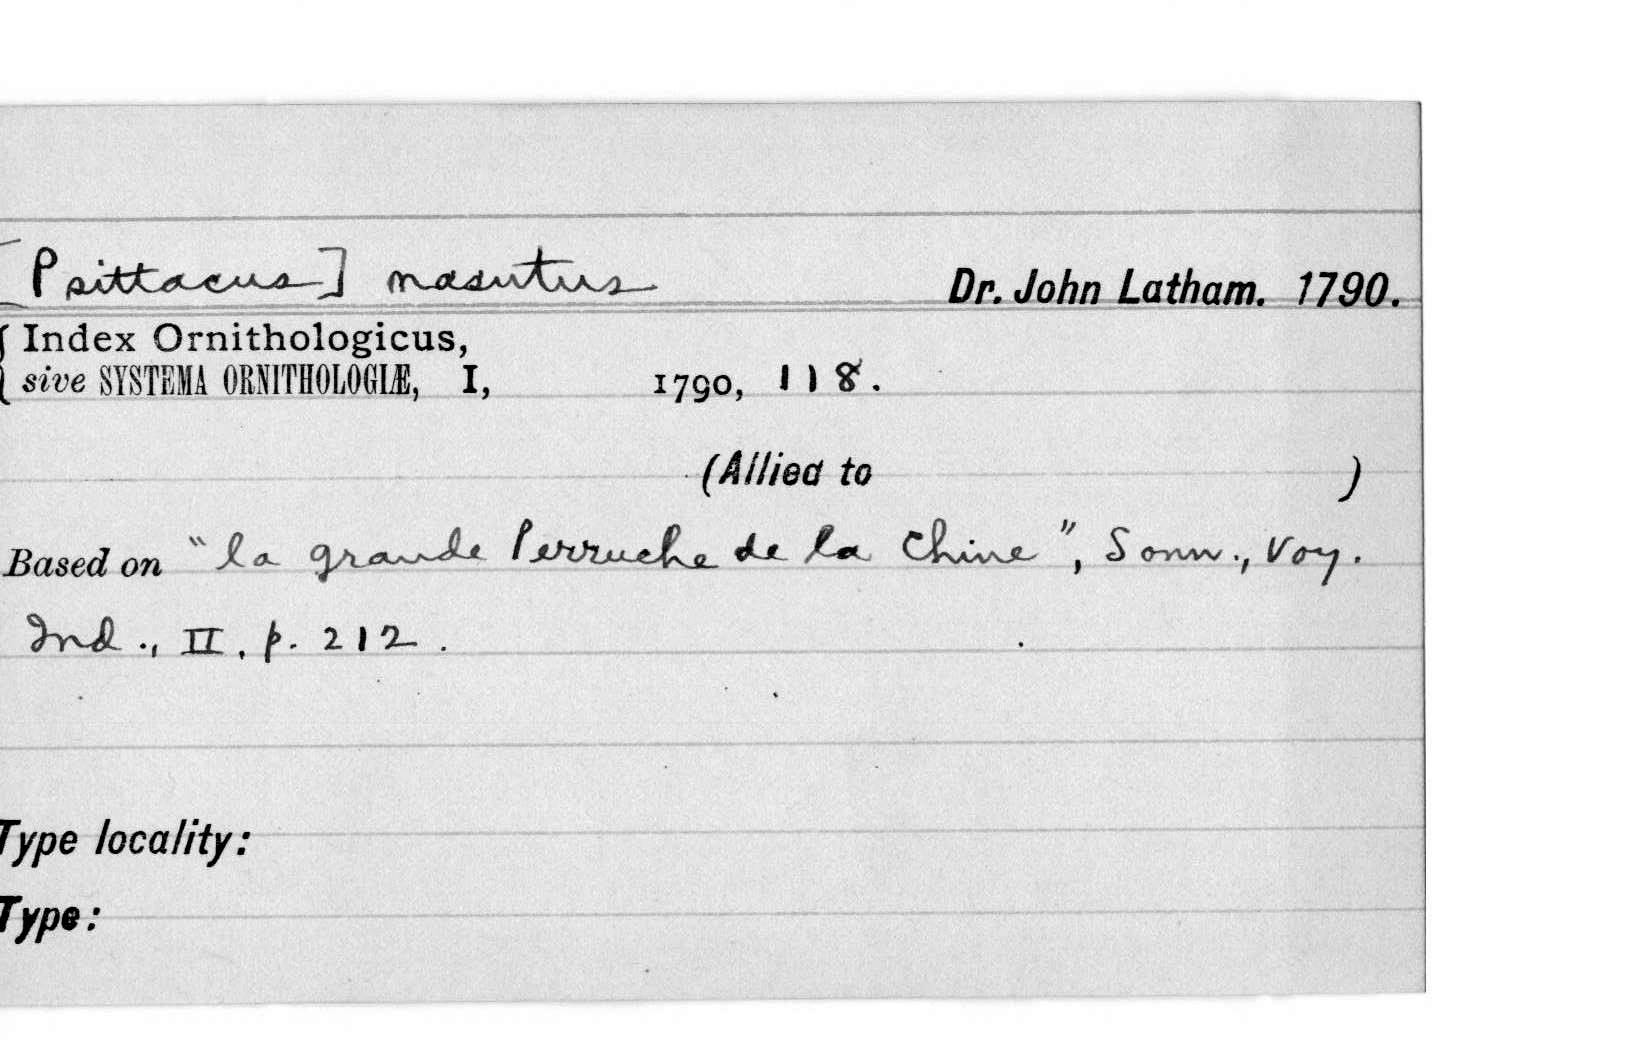 [Psittacus] nasutus Dr. John Latham. 1790.
{ Index Ornithologicus,
sive SYSTEMA ORNITHOLOGIÆ, I, 1790, 118.
(Allied to )
Based on "la grande Perruche de la Chine", Sonn., Voy.
Ind., II, p. 212.
Type locality:
Type: